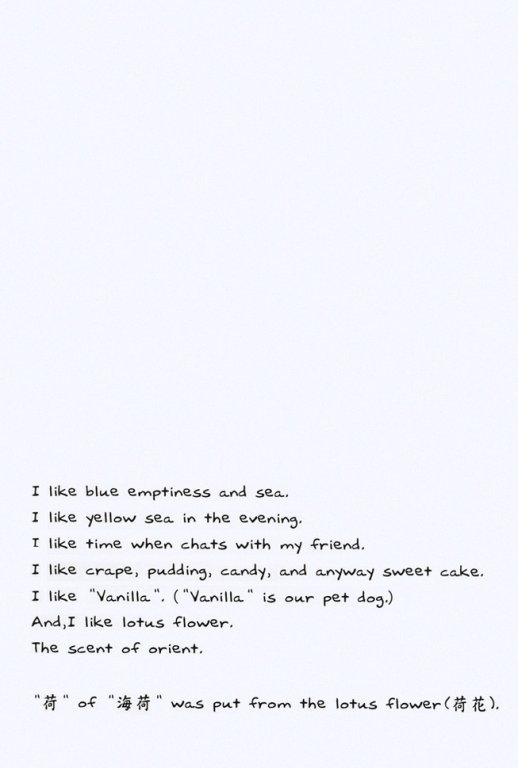 I like blue emptiness and sea.
I like yellow sea in the evening.
I like time when chats with my friend.
I like crape, pudding, candy, and anyway sweet cake.
I like "Vanilla". ("Vanilla" is our pet dog.)
And,I like lotus flower.
The scent of orient.
"荷" of "海荷" was put from the lotus flower(荷花).